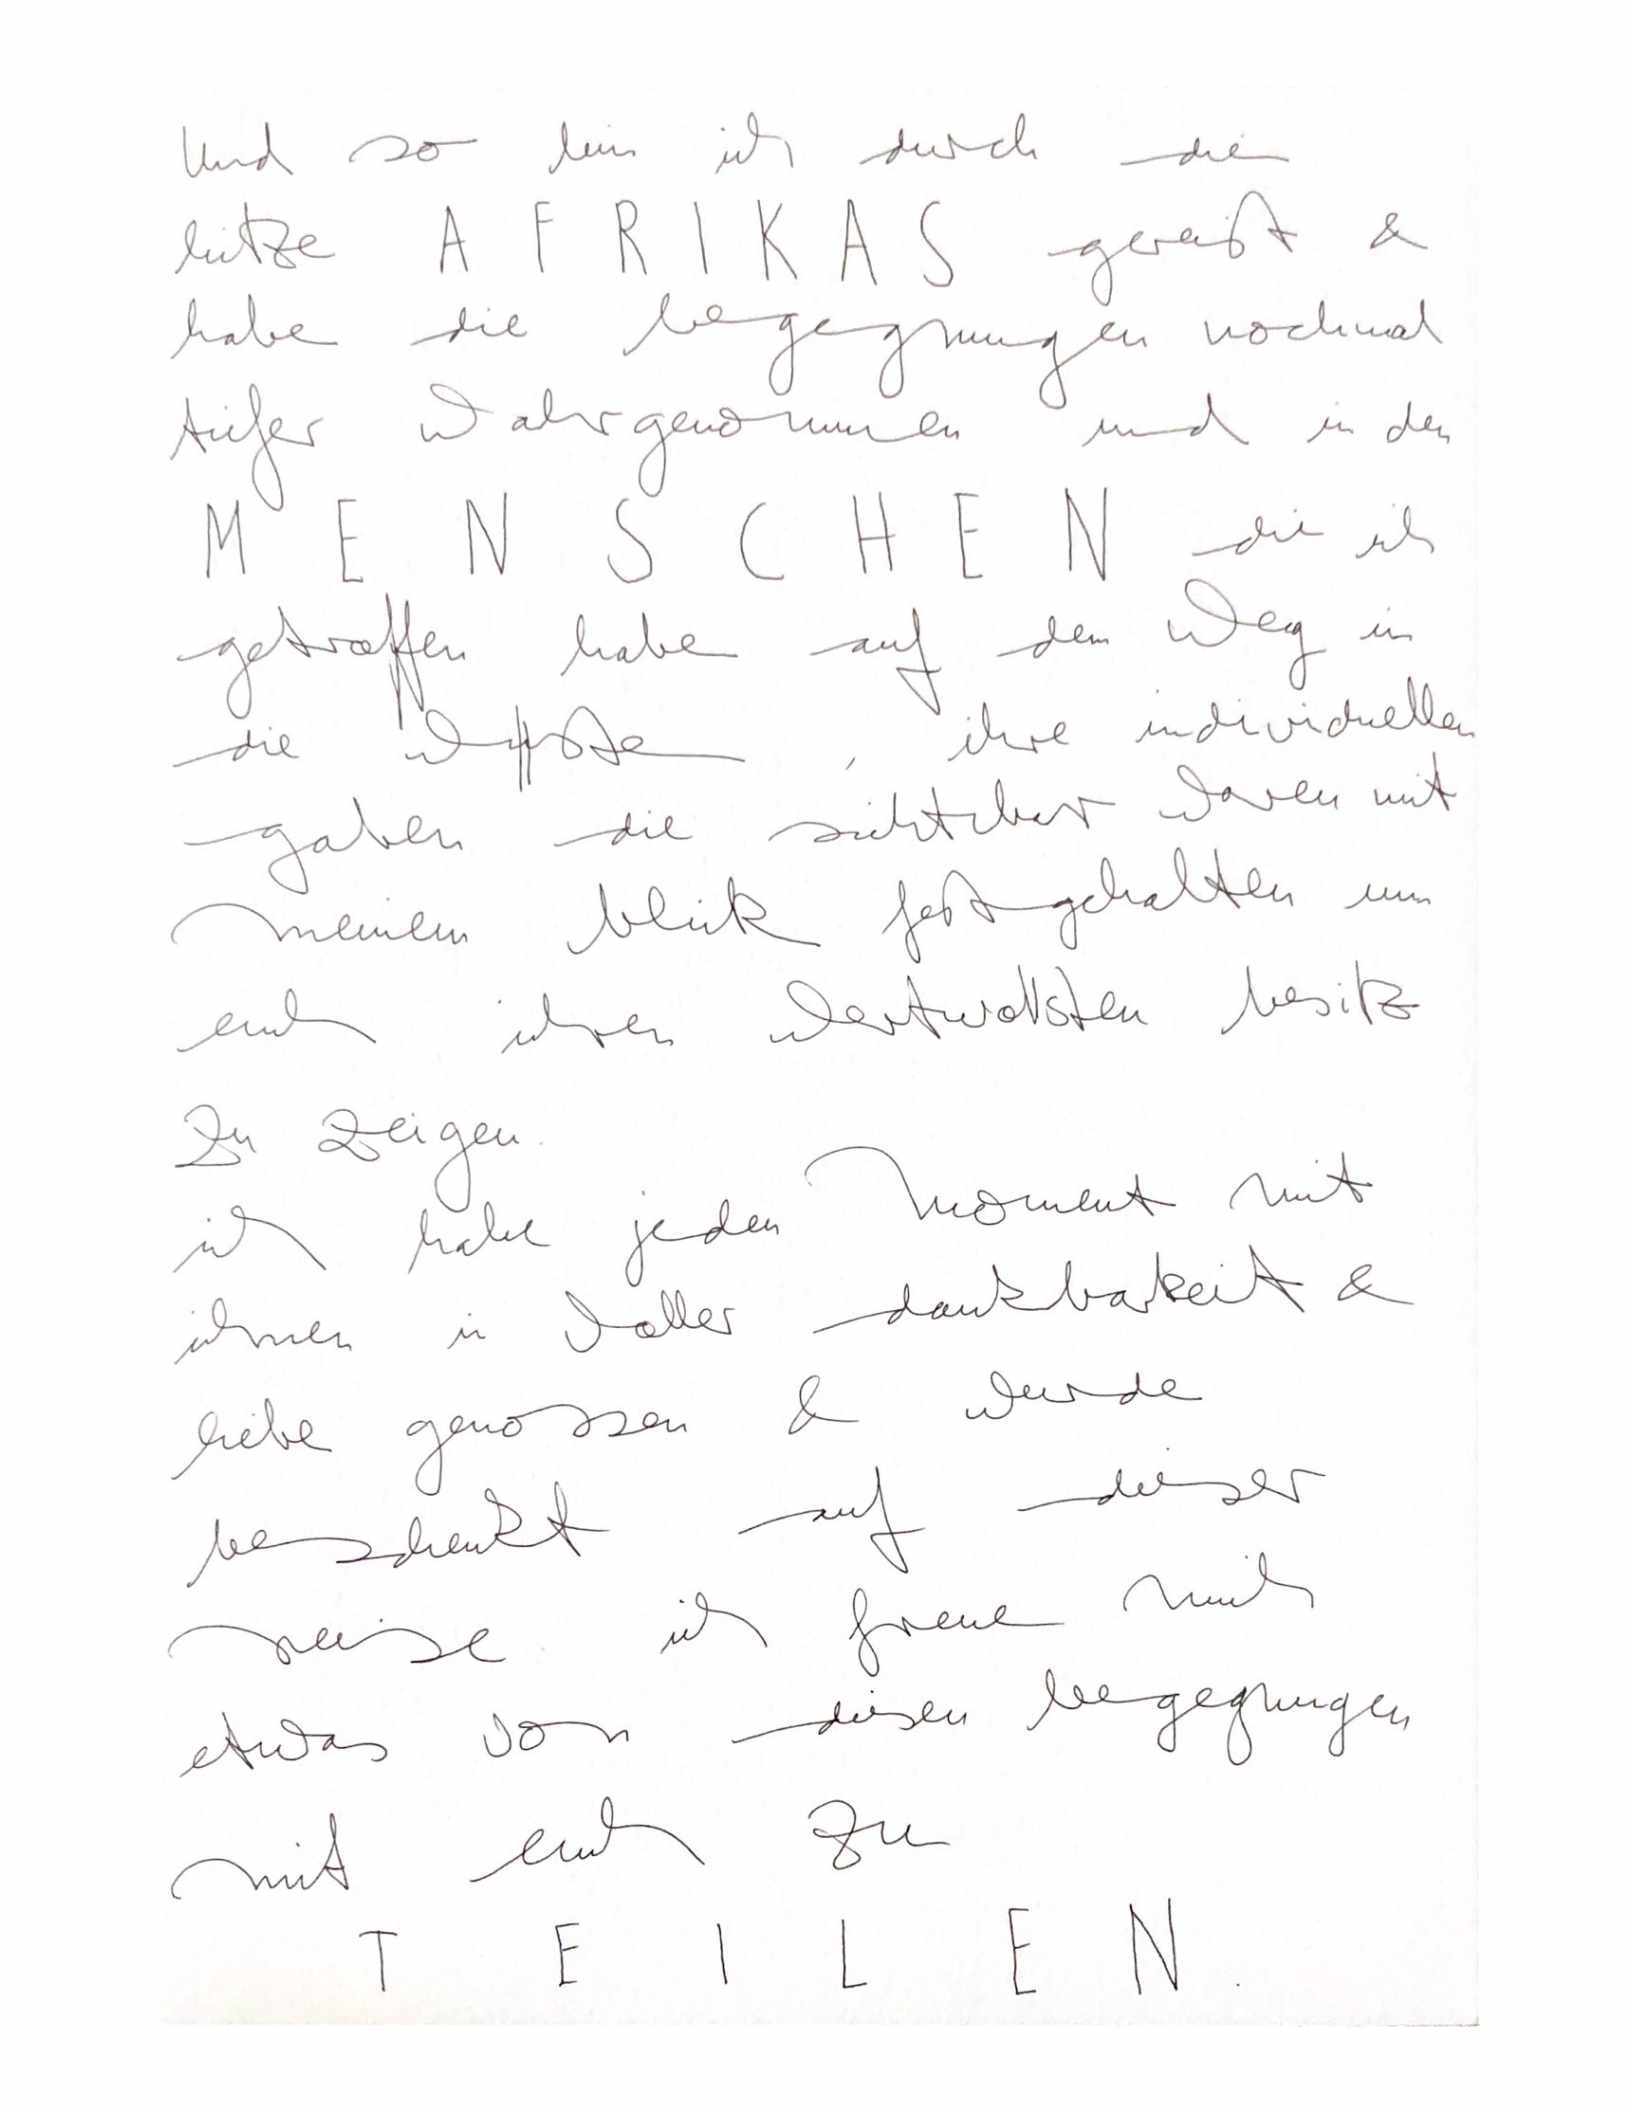 Und so bin ich durch die
hitze AFRIKAS gereist &
habe die begegnungen nochmal
tiefer wahrgenommen und in den
MENSCHEN die ich
getroffen habe auf dem Weg in
die wüste, ihre individuellen
gaben die sichtbar waren mit
meinem blick festgehalten um
euch ihren wertvollsten besitz
zu zeigen.
ich habe jeden moment mit
ihnen in voller dankbarkeit &
liebe genossen & wurde
beschenkt auf dieser
reise. ich freue mich
etwas von diesen begegnungen
mit euch zu
TEILEN.